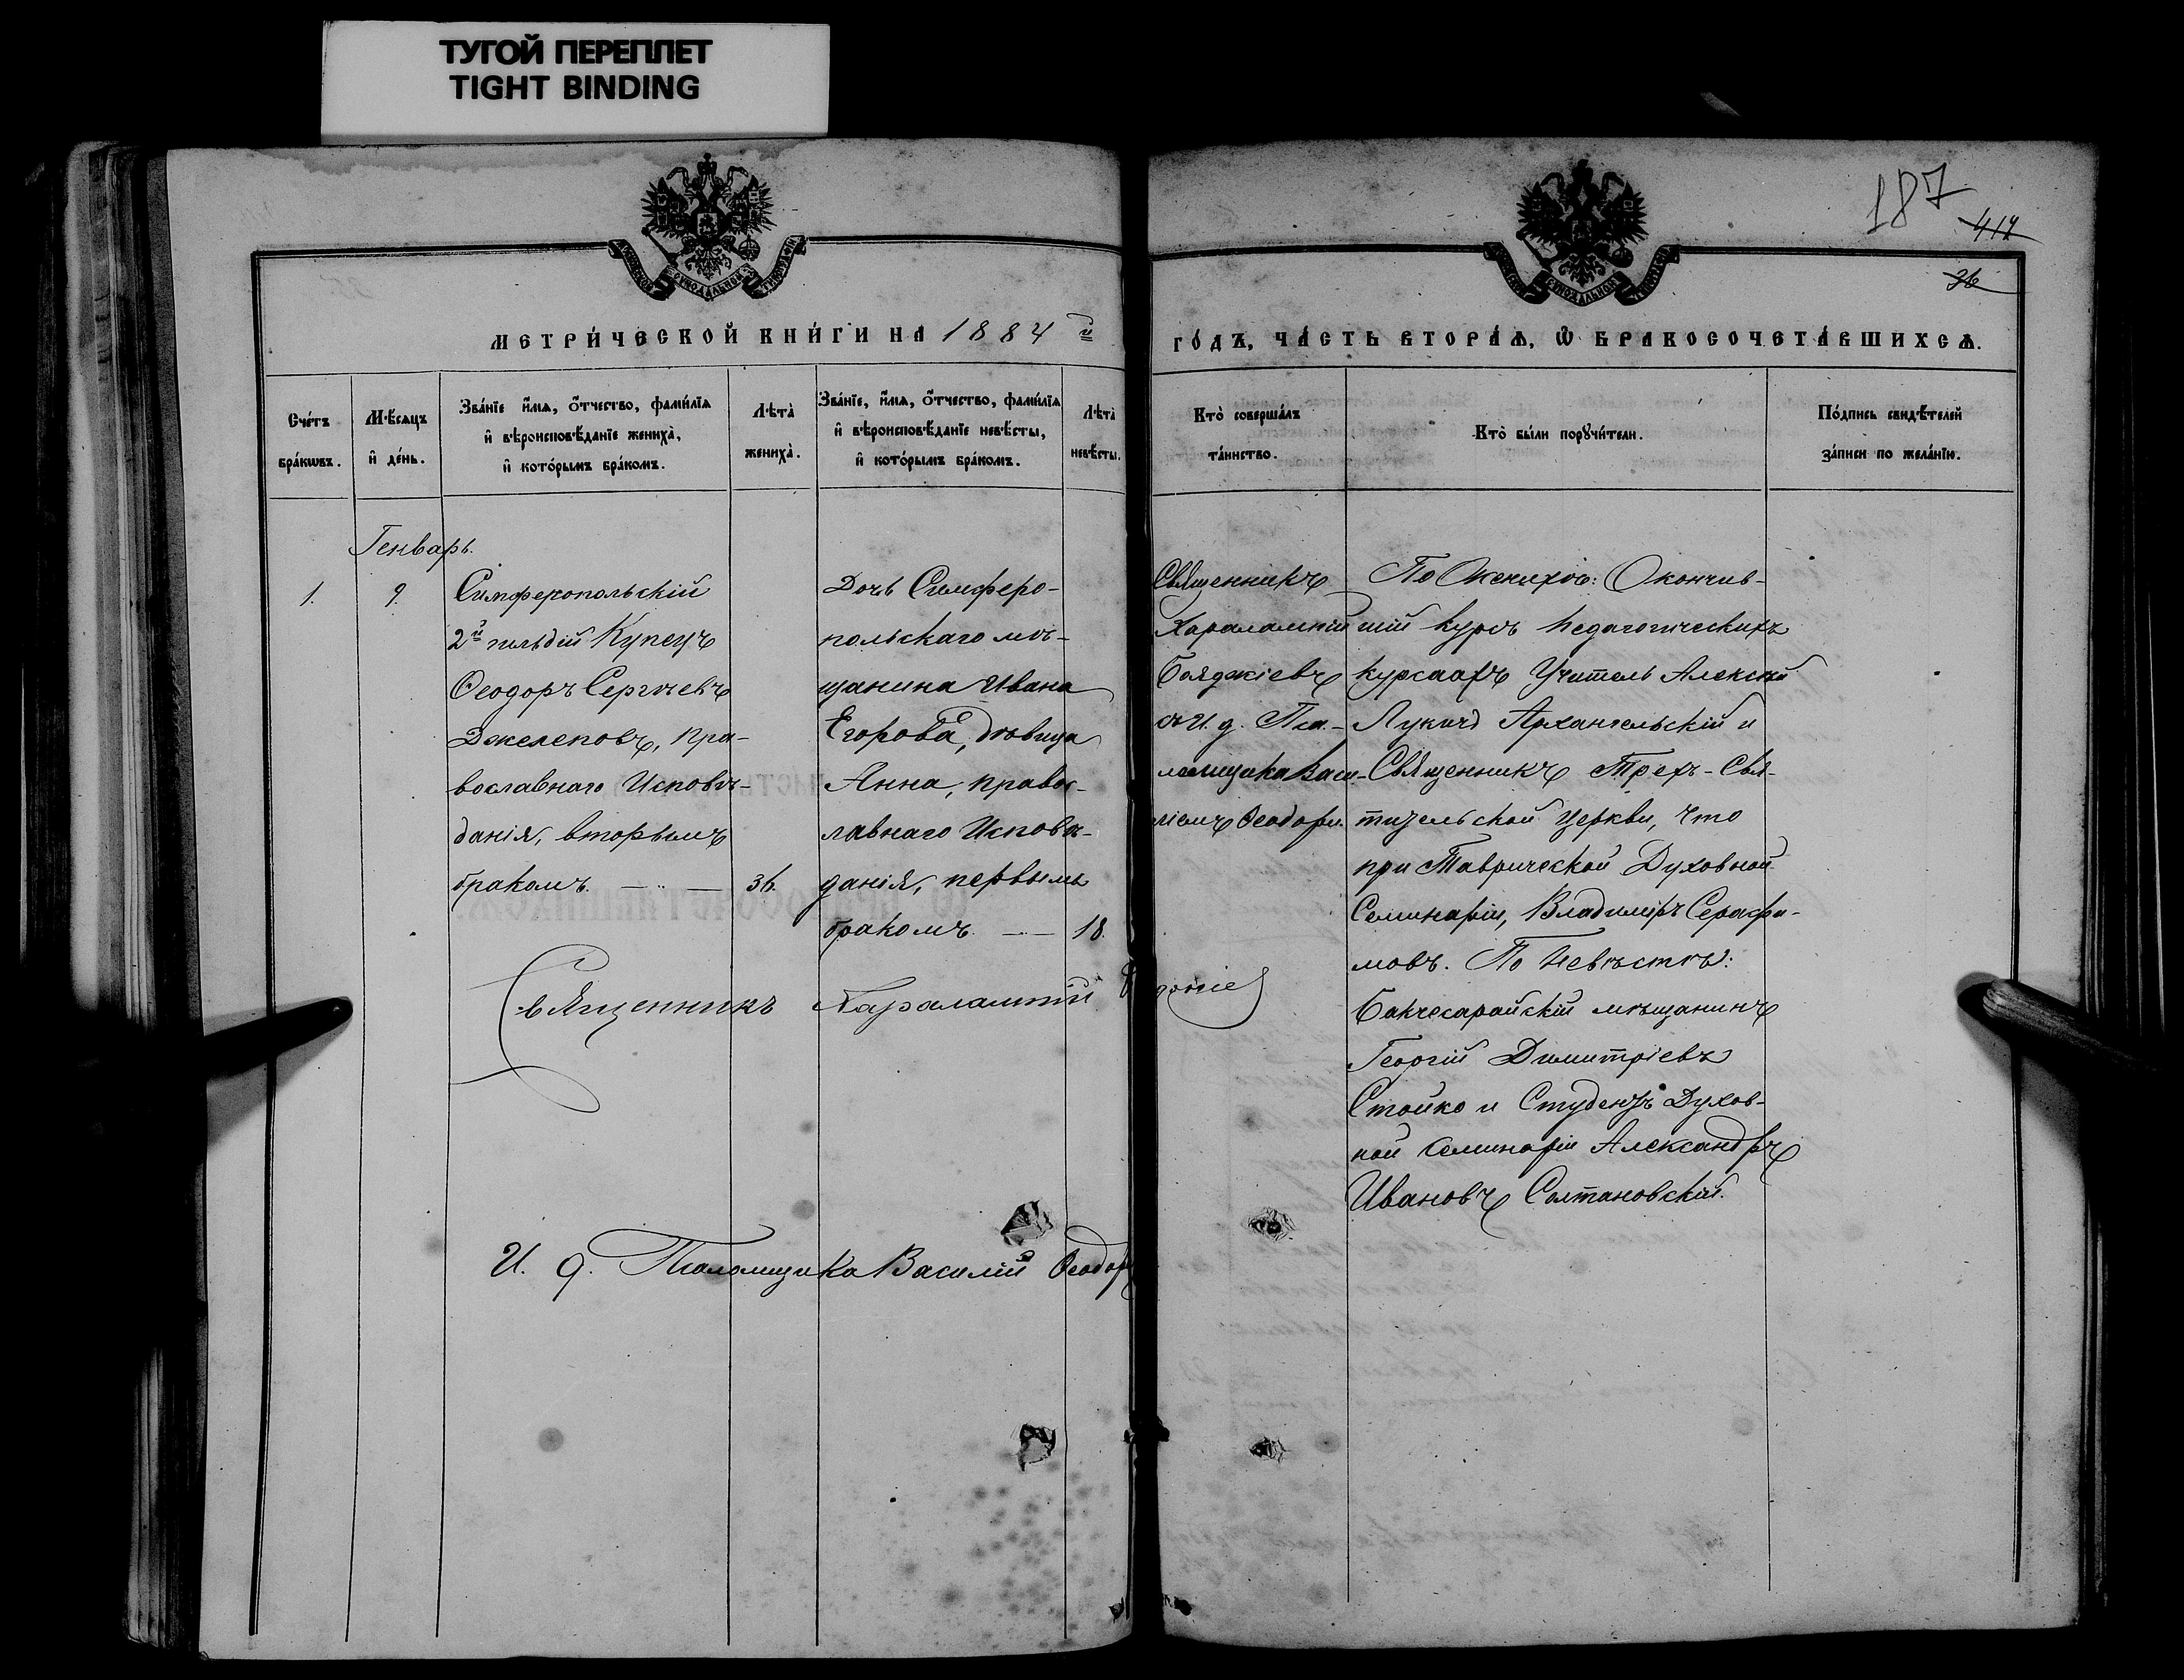 ТУГОЙ ПЕРЕПЛЕТ
TIGHT BINDING
187
417
36
МЕТРИ́ЧЕСКОЙ КНИ́ГИ НА 1884 й
ГО́ДЪ, ЧА́СТЬ ВТОРА́Ѧ, Ѽ БРАКОСОЧЕТА́ВШИХСѦ.
Сче́тъ
бра́кѡвъ.
Мѣ́сяцъ
и҆ де́нь.
Зва́нїе и҆́мѧ, о҆́тчество, фами́лїѧ
и҆ вѣроисповѣ́данїе жениха̀,
и҆ кото́рымъ бра́комъ.
Лѣта̀
жениха̀.
Зва́нїе, и҆́мѧ, о҆́тчество, фами́лїѧ
и҆ вѣроисповѣ́данїе невѣ́сты,
и҆ кото́рымъ бра́комъ.
Лѣта̀
невѣ́сты.
Кто̀ соверша́лъ
та́инство.
Кто̀ бы́ли порꙋчи́тели.
По́дпись свидѣ́телей
за́писи по жела́нїю.
Генварь.
1.
9.
Симферопольскій
2й гильдіи Купецъ
Ѳеодоръ Сергѣевъ
Джелеповъ, Пра-
вославнаго Исповѣ-
данія, вторымъ
бракомъ. — „ — 36.
Дочь Симферо-
польскаго мѣ-
щанина Ивана
Егорова, дѣвица
Анна, правос-
лавнаго Исповѣ-
данія, первымъ
бракомъ. — — 18.
Священникъ
Харалампій
Бояджіевъ
съ И. д. Пса-
ломщика Васи-
ліемъ Ѳеодори.
По Женихѣ: Окончив-
шій курсъ педагогическихъ
курсахъ Учитель Алексѣй
Лукичъ Архангельскій и
Священникъ Трехъ-Свя-
тительской церкви, что
при Таврической Духовной
Семинаріи, Владиміръ Серафи-
мовъ. По Невѣстѣ:
Бакчесарайскій мѣщанинъ
Георгій Димитріевъ
Стойко и Студентъ Духов-
ной Семинаріи Александръ
Ивановъ Солтановскій.
Священникъ Харалампій
И. д. Псаломщика Василій Ѳеодор